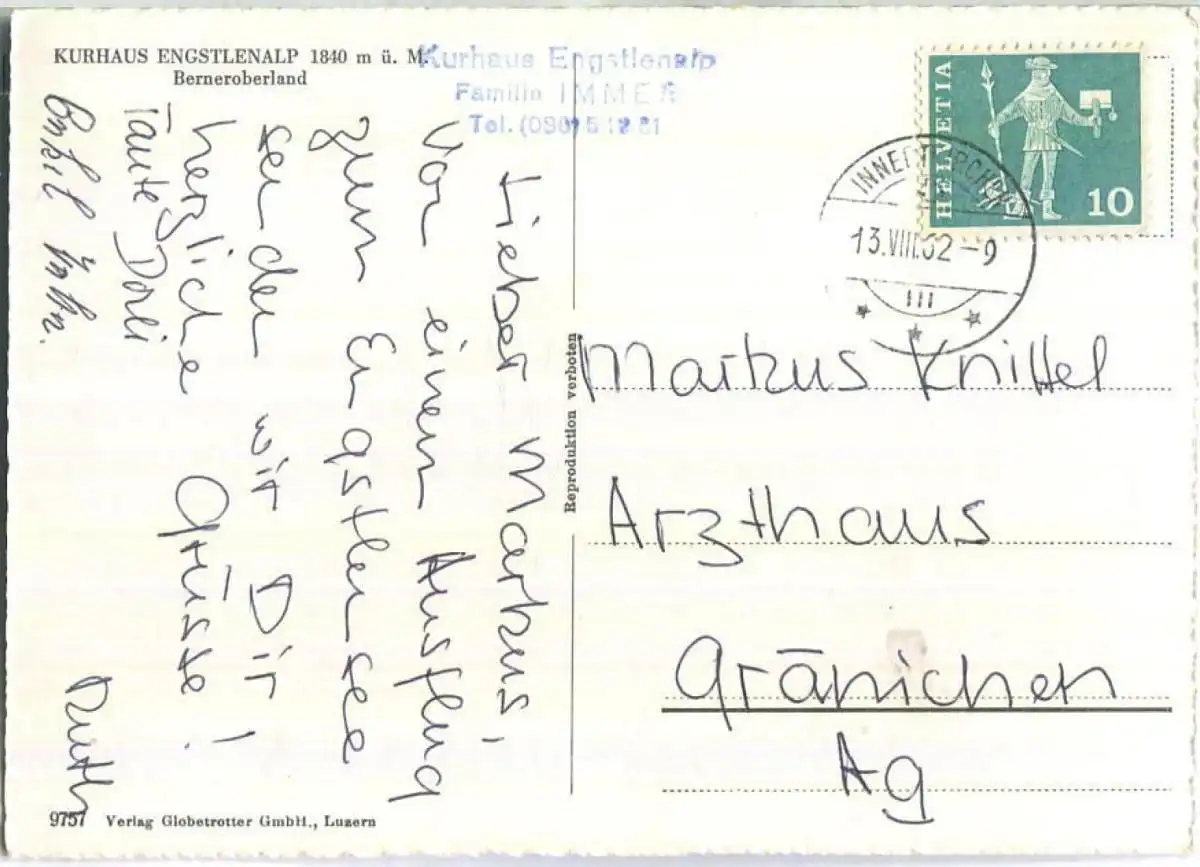 KURHAUS ENGSTLENALP 1840 m ü. M.
Berneroberland
Kurhaus Engstlenalp
Familie IMMER
Tel.
HELVETIA
10
INNERTKIRCHEN
13.VIII.62-9
Lieber Markus,
Vor einem Ausflug
zum Engstlensee
senden wir Dir
herzliche Grüsse!
Tante Dorli
Ruth
Reproduktion verboten
Markus Knittel
Arzthaus
Gränichen
Ag
9757 Verlag Globetrotter GmbH., Luzern